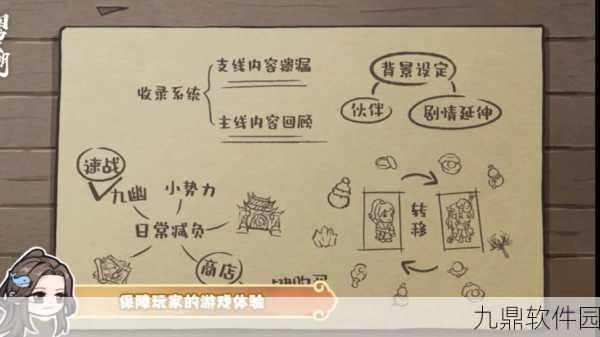 支线内容遗漏
收录系统
主线内容回顾
背景设定
伙伴
剧情延伸
速战
九幽
小势力
日常减负
商店
转移
保障玩家的游戏体验
九鼎软件园